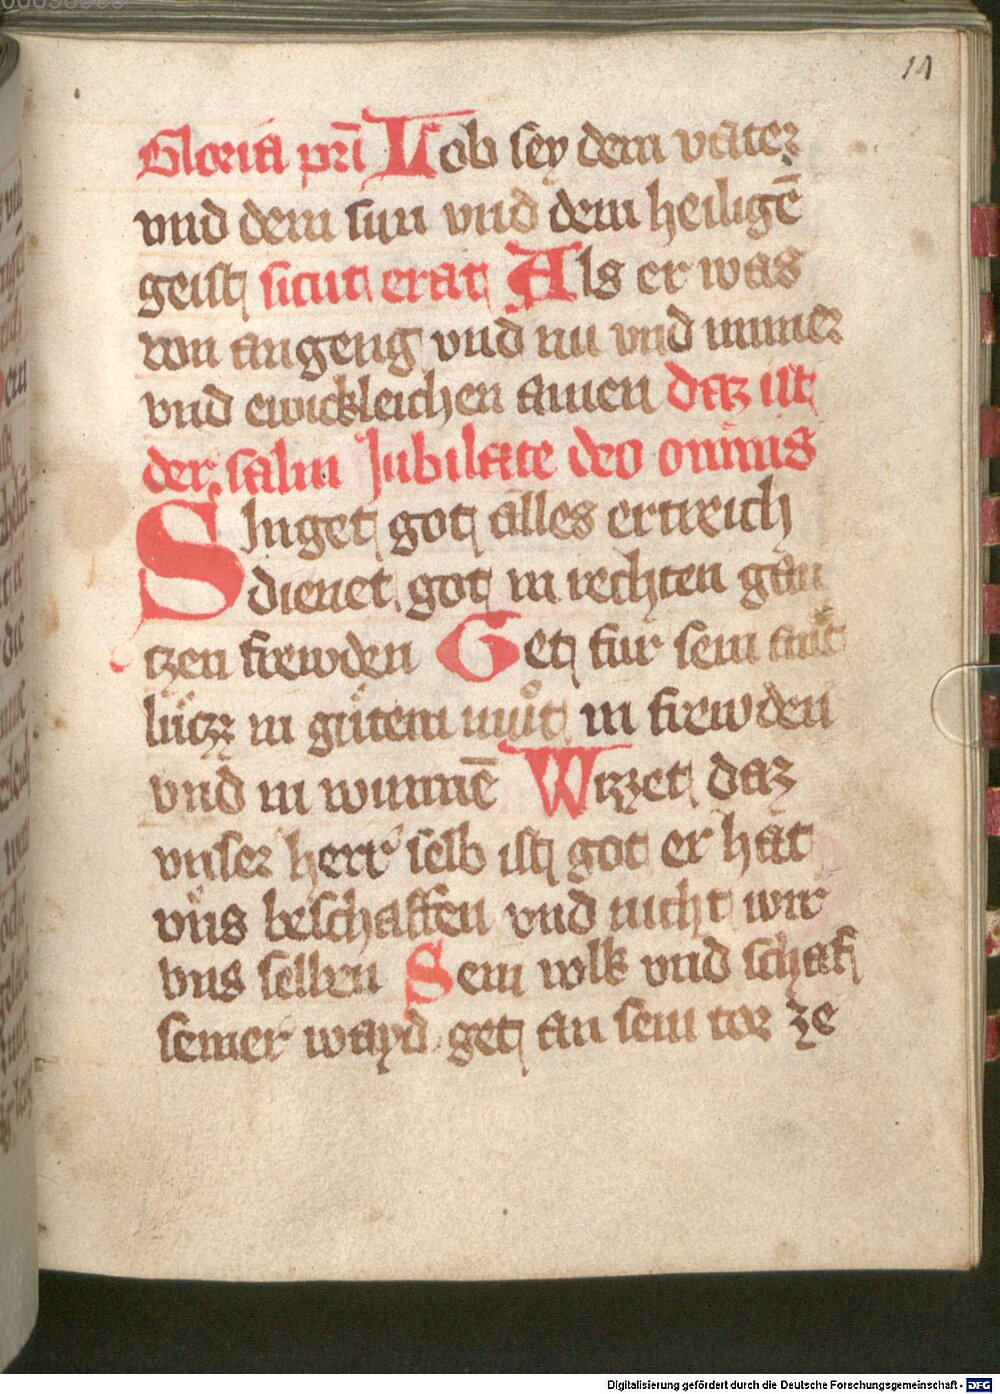 14
Gloria pri Lob sey dem vater
vnd dem sun vnd dem heiligē
geist sicut erat Als er was
von angeng vnd nu vnd immer
vnd ewickleichen amen daz ist
der salm Jubilate deo omnis
SInget got alles ertreich
dienet got in rechten gan
czen frewden Get fur sein ant
lüczz in gütem můt in frewden
vnd in wunnē Wizzet daz
vnser herr selb ist got er hat
vns beschaffen vnd nicht wir
vns selben Sein volk vnd schaf
seiner wayd get an sein tor ze
Digitalisierung gefördert durch die Deutsche Forschungsgemeinschaft - DFG